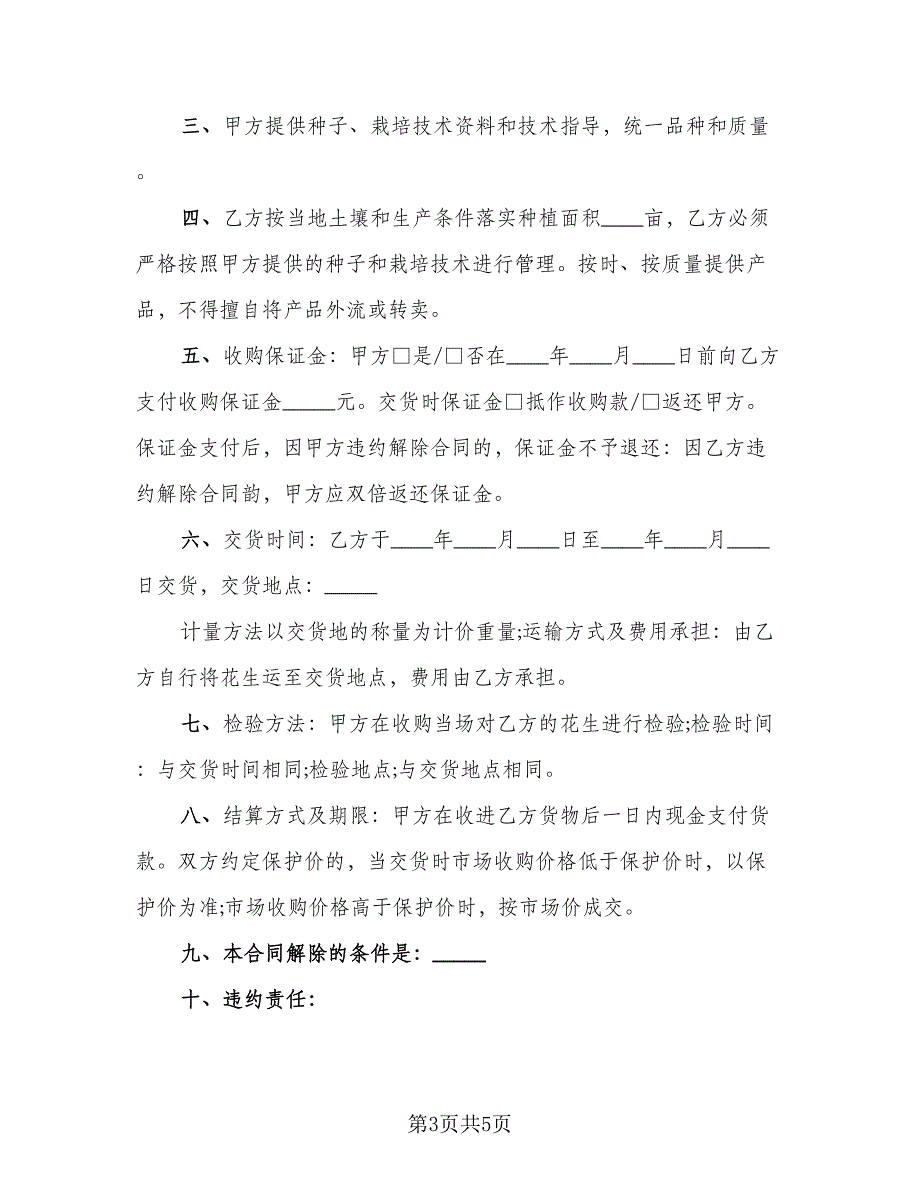 三、甲方提供种子、栽培技术资料和技术指导，统一品种和质量
。
四、乙方按当地土壤和生产条件落实种植面积____亩，乙方必须
严格按照甲方提供的种子和栽培技术进行管理。按时、按质量提供产
品，不得擅自将产品外流或转卖。
五、收购保证金：甲方□是/□否在____年____月____日前向乙方
支付收购保证金_____元。交货时保证金□抵作收购款/□返还甲方。
保证金支付后，因甲方违约解除合同的，保证金不予退还：因乙方违
约解除合同韵，甲方应双倍返还保证金。
六、交货时间：乙方于____年____月____日至____年____月____
日交货，交货地点：_____
计量方法以交货地的称量为计价重量;运输方式及费用承担：由乙
方自行将花生运至交货地点，费用由乙方承担。
七、检验方法：甲方在收购当场对乙方的花生进行检验;检验时间
：与交货时间相同;检验地点;与交货地点相同。
八、结算方式及期限：甲方在收进乙方货物后一日内现金支付货
款。双方约定保护价的，当交货时市场收购价格低于保护价时，以保
护价为准;市场收购价格高于保护价时，按市场价成交。
九、本合同解除的条件是：_____
十、违约责任：
第3页共5页